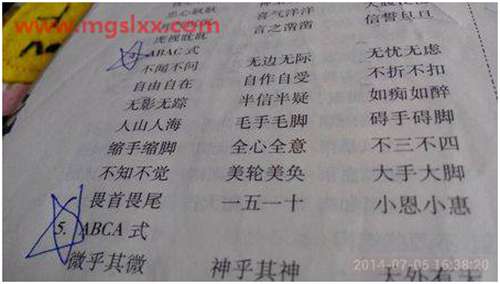 www.mgslxx.com
忠心耿耿 喜气洋洋
虎视眈眈 言之凿凿 信誓旦旦
4. ABAC 式
不闻不问 无边无际 无忧无虑
自由自在 自作自受 不折不扣
无影无踪 半信半疑 如痴如醉
人山人海 毛手毛脚 碍手碍脚
缩手缩脚 全心全意 不三不四
不知不觉 美轮美奂 大手大脚
畏首畏尾 一五一十 小恩小惠
5. ABCA 式
微乎其微 神乎其神 天外有天
2014-07-05 16:38:20